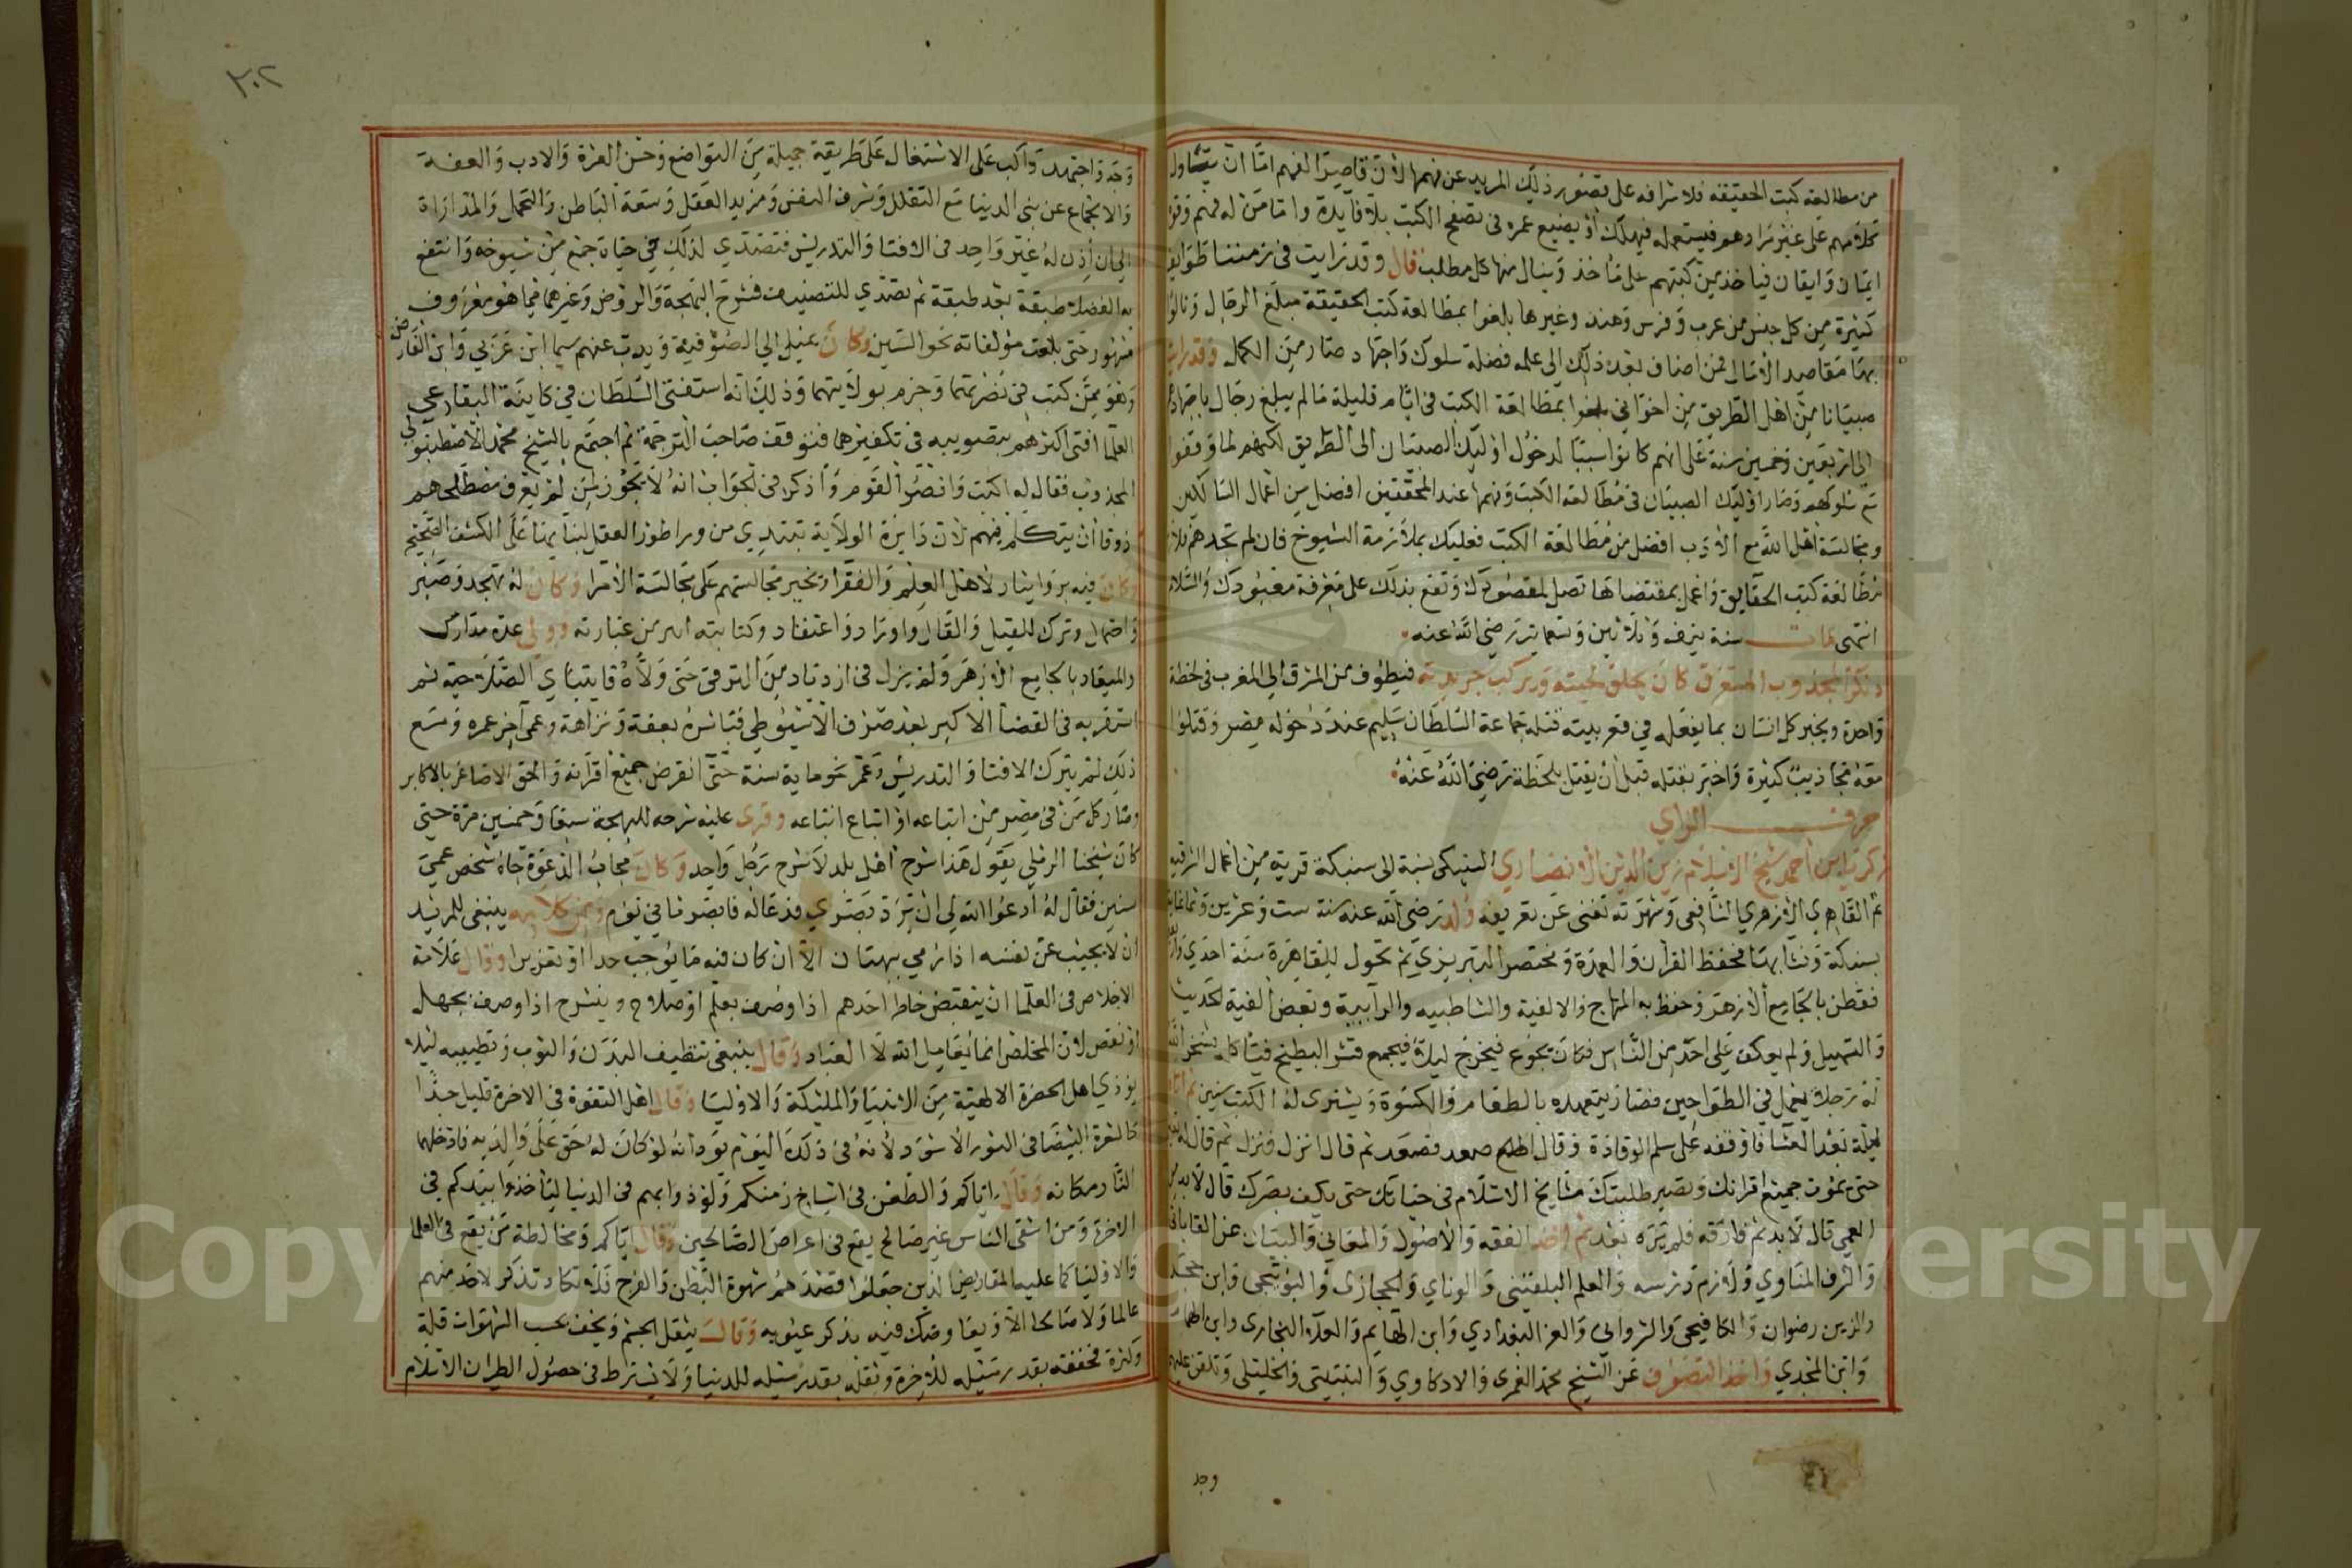 من مطالعة كتب الحقيقة فلاشرافه على قصور ذلك المريد عن فهمها لان قاصر الفهم اما ان يتاول
كلامهم على غير مرادهم فيستعمله فيهلك او يضيع عمره في تصفح الكتب بلا فايدة واما من له فهم وقوة
ايمان وايقان فياخذ من كتبهم على ماخذ وينال منها كل مطلب قال وقد رايت في زمننا طوايف
كثيرة من كل جنس من عرب وفرس وهند وغيرها بلغوا بمطالعة كتب الحقيقة مبلغ الرجال ونالوا
بها مقاصد الامال فمن اضاف بعد ذلك الى علمه فضلة سلوك واجتهاد صار من الكمل وقد رايت
صبيانا من اهل الطريق من اخواني بلغوا بمطالعة الكتب في ايام قليلة ما لم يبلغ رجال باجتهاد
الى اربعين وخمسين سنة على انهم كانوا سببا لدخول اوليك الصبيان الى الطريق لكنهم لما وقفوا
مع سلوكهم وصار اوليك الصبيان في مطالعة الكتب وفهمها عند المحققين افضل من اعمال السالكين
ومجالسة اهل الله مع الادب افضل من مطالعة الكتب فعليك بملازمة الشيوخ فان لم تجدهم فلازم
مطالعة كتب الحقايق واعمل بمقتضاها تصل لمقصودك وتقع بذلك على معرفة معبودك والسلام
انتهى مات سنة نيف وثلاثين وتسعماية رضي الله عنه
المجذوب المستغرق كان يحلق لحيته ويركب جريدته فيطوف من المشرق الى المغرب في لحظة
واحدة ويخبر كل انسان بما يفعله في قعر بيته قتله جماعة السلطان سليم عند دخوله مصر وقتلوا
معه مجاذيب كثيرة واخبر بقتله قبل ان يقتل بلحظة رضي الله عنه
حرف الزاي
زكريا بن احمد شيخ الاسلام زين الدين الانصاري السنيكي نسبة الى سنيكة قرية من اعمال الشرقية
ثم القاهري الازهري الشافعي وشهرته تغني عن تعريفه ولد رضي الله عنه سنة ست وعشرين وثمانماية
بسنيكة ونشا بها فحفظ القران والعمدة ومختصر التبريزي ثم تحول للقاهرة سنة احدى
فقطن بالجامع الازهر وحفظ به المنهاج والالفية والشاطبية والرابية وبعض الفية الحديث
والتسهيل ولم يعكف على احد من الناس فكان يجوع فيخرج ليلا فيجمع قشر البطيخ فياكله فسخر الله
له رجلا يعمل في الطواحين فصار يتعهده بالطعام والكسوة ويشتري له الكتب سنين ثم اتاه
ليلة بعد العشا فاوقفه على سلم الوقادة وقال اطلع صعد فصعد ثم قال انزل فنزل ثم قال له
حتى يموت جميع اقرانك وتصير طلبتك مشايخ الاسلام في حياتك حتى يكف بصرك قال لا بد من
العمى قال لا بد ثم فارقه فلم يره بعد ثم اخذ الفقه والاصول والمعاني والبيان عن القاياتي
والشرف المناوي ولازم درسه والعلم البلقيني والوناي والحجازي والبوتيجي وابن حجر
والزين رضوان والكافيجي والشرواني والعز البغدادي وابن الهايم والعلا البخاري وابن الهمام
وابن المجدي واخذ التصوف عن الشيخ محمد الغمري والادكاوي والنبتيتي والخليلي وتلقن عليهم
وجد
٣٠٢
وجد واجتهد واكب على الاشتغال على طريقة جميلة من التواضع وحسن العشرة والادب والعفة
والانجماع عن بني الدنيا مع التقلل وشرف النفس ومزيد العقل وسعة الباطن والتحمل والمداراة
الى ان اذن له غير واحد في الافتا والتدريس فتصدى لذلك في حياة جمع من شيوخه وانتفع
به الفضلا طبقة بعد طبقة ثم تصدى للتصنيف فشرح البهجة والروض وغيرهما فيما هو معروف
مشهور حتى بلغت مؤلفاته نحو الستين وكان يميل الى الصوفية ويذب عنهم سيما ابن عربي وابن الفارض
وهو ممن كتب في نصرتهما وجزم بولايتهما وذلك انه استفتى السلطان في كاينة البقاعي
العلما افتى اكثرهم بتصويبه في تكفيرهما فتوقف صاحب الترجمة ثم اجتمع بالشيخ محمد الاصطنبولي
المجذوب فقال له اكتب وانصر القوم واذكر في الجواب انه لا يجوز لمن لم يعرف مصطلحهم
ذوقا ان يتكلم فيهم لان دايرة الولاية تبتدي من ورا طور العقل لبنايها على الكشف الصحيح
وكان فيه بر وايثار لاهل العلم والفقرا وتخير مجالستهم على مجالسة الامرا وكان له تهجد وصبر
واحتمال وترك للقيل والقال واوراد واعتقاد وكتابته امس من عبارته وولي عدة مدارك
والميقاد بالجامع الازهر ولم يزل في ازدياد من الترقي حتى ولاه قايتباي الصلاحية ثم
استقر به في القضا الاكبر بعد صرف الاسيوطي فباشره بعفة ونزاهة وعمي اخر عمره ومع
ذلك لم يترك الافتا والتدريس وعمر نحو ماية سنة حتى انقرض جميع اقرانه والحق الاصاغر بالاكابر
وصار كل من في مصر من اتباعه او اتباع اتباعه وقرى عليه شرحه للبهجة سبعا وخمسين مرة حتى
كان شيخنا الرملي يقول هذا شرح اهل بلد لا شرح رجل واحد وكان مجاب الدعوة جاه شخص عمي
سنين فقال له ادعوا الله لي ان يرد بصري فدعا له فابصر ثاني يوم ومن كلامه ينبغي للمريد
ان لا يجيب عن نفسه اذا رمي ببهتان الا ان كان فيه ما يوجب حدا او تعزيرا وقال علامة
الاخلاص في العلما ان ينقبض خاطر احدهم اذا وصف بعلم او صلاح وينشرح اذا وصف بجهل
او نقص لان المخلص انما يعامل الله لا العباد وقال ينبغي تنظيف البدن والثوب وتطييبه ليلا
يؤذي اهل الحضرة الالهية من الانبيا والمليكة والاوليا وقال اهل التقوة في الاخرة قليل جدا
كالشعرة البيضا في الثور الاسود لانه في ذلك اليوم يود انه لو كان له حق على والديه فادخلهما
النار مكانه وقال اياكم والطعن في اشياخ زمنكم ولوذوا بهم في الدنيا لياخذوا بيدكم في
الاخرة ومن اشقى الناس غير صالح يقع في اعراض الصالحين وقال اياكم ومخالطة من يقع في العلما
والاوليا كما عليه المقاريض الذين جعلوا قصدهم شهوة البطن والفرج فلا تكاد تذكر لاحد منهم
عالما ولا صالحا الا ويعارضك فيه بذكر عيوبه وقال يثقل الجسم ويخف بحسب الشهوات قلة
وكثرة فخفته بقدر ميله للاخرة وثقله بقدر ميله للدنيا ولا يشترط في حصول الطيران الاسلام
Copyright © King Saud University